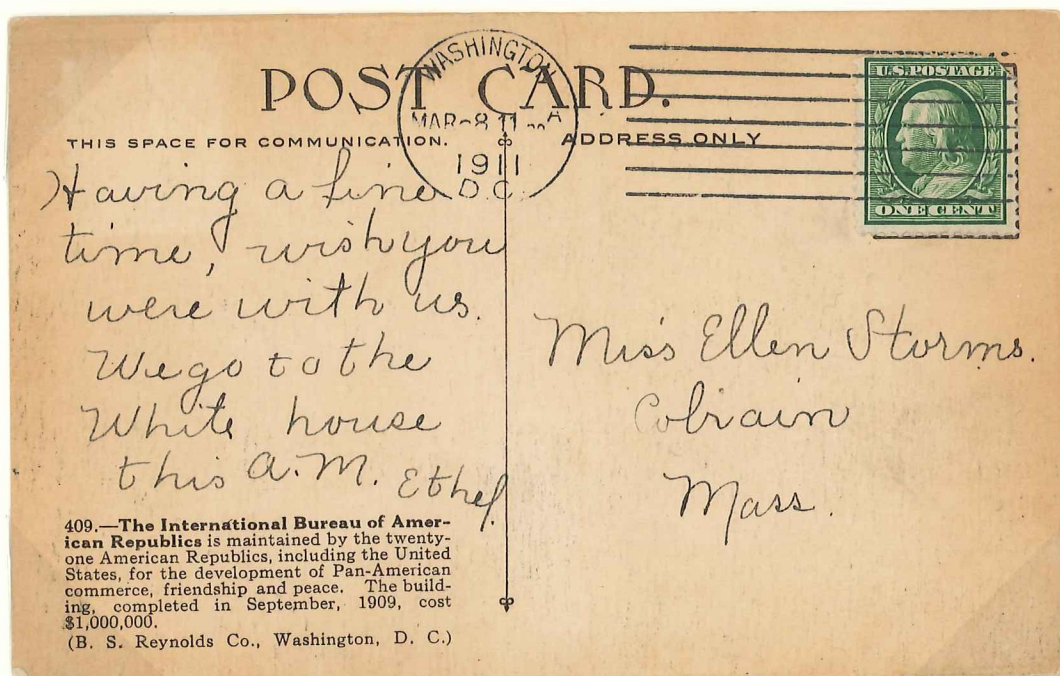 POST CARD.
WASHINGTON
MAR-8 11 A
1911
D.C.
U.S. POSTAGE
ONE CENT
THIS SPACE FOR COMMUNICATION.
ADDRESS ONLY
Having a fine
time, wish you
were with us.
We go to the
White house
this A.M. Ethel.
Miss Ellen Storms.
Colrain
Mass.
409.—The International Bureau of Amer-
ican Republics is maintained by the twenty-
one American Republics, including the United
States, for the development of Pan-American
commerce, friendship and peace. The build-
ing, completed in September, 1909, cost
$1,000,000.
(B. S. Reynolds Co., Washington, D. C.)